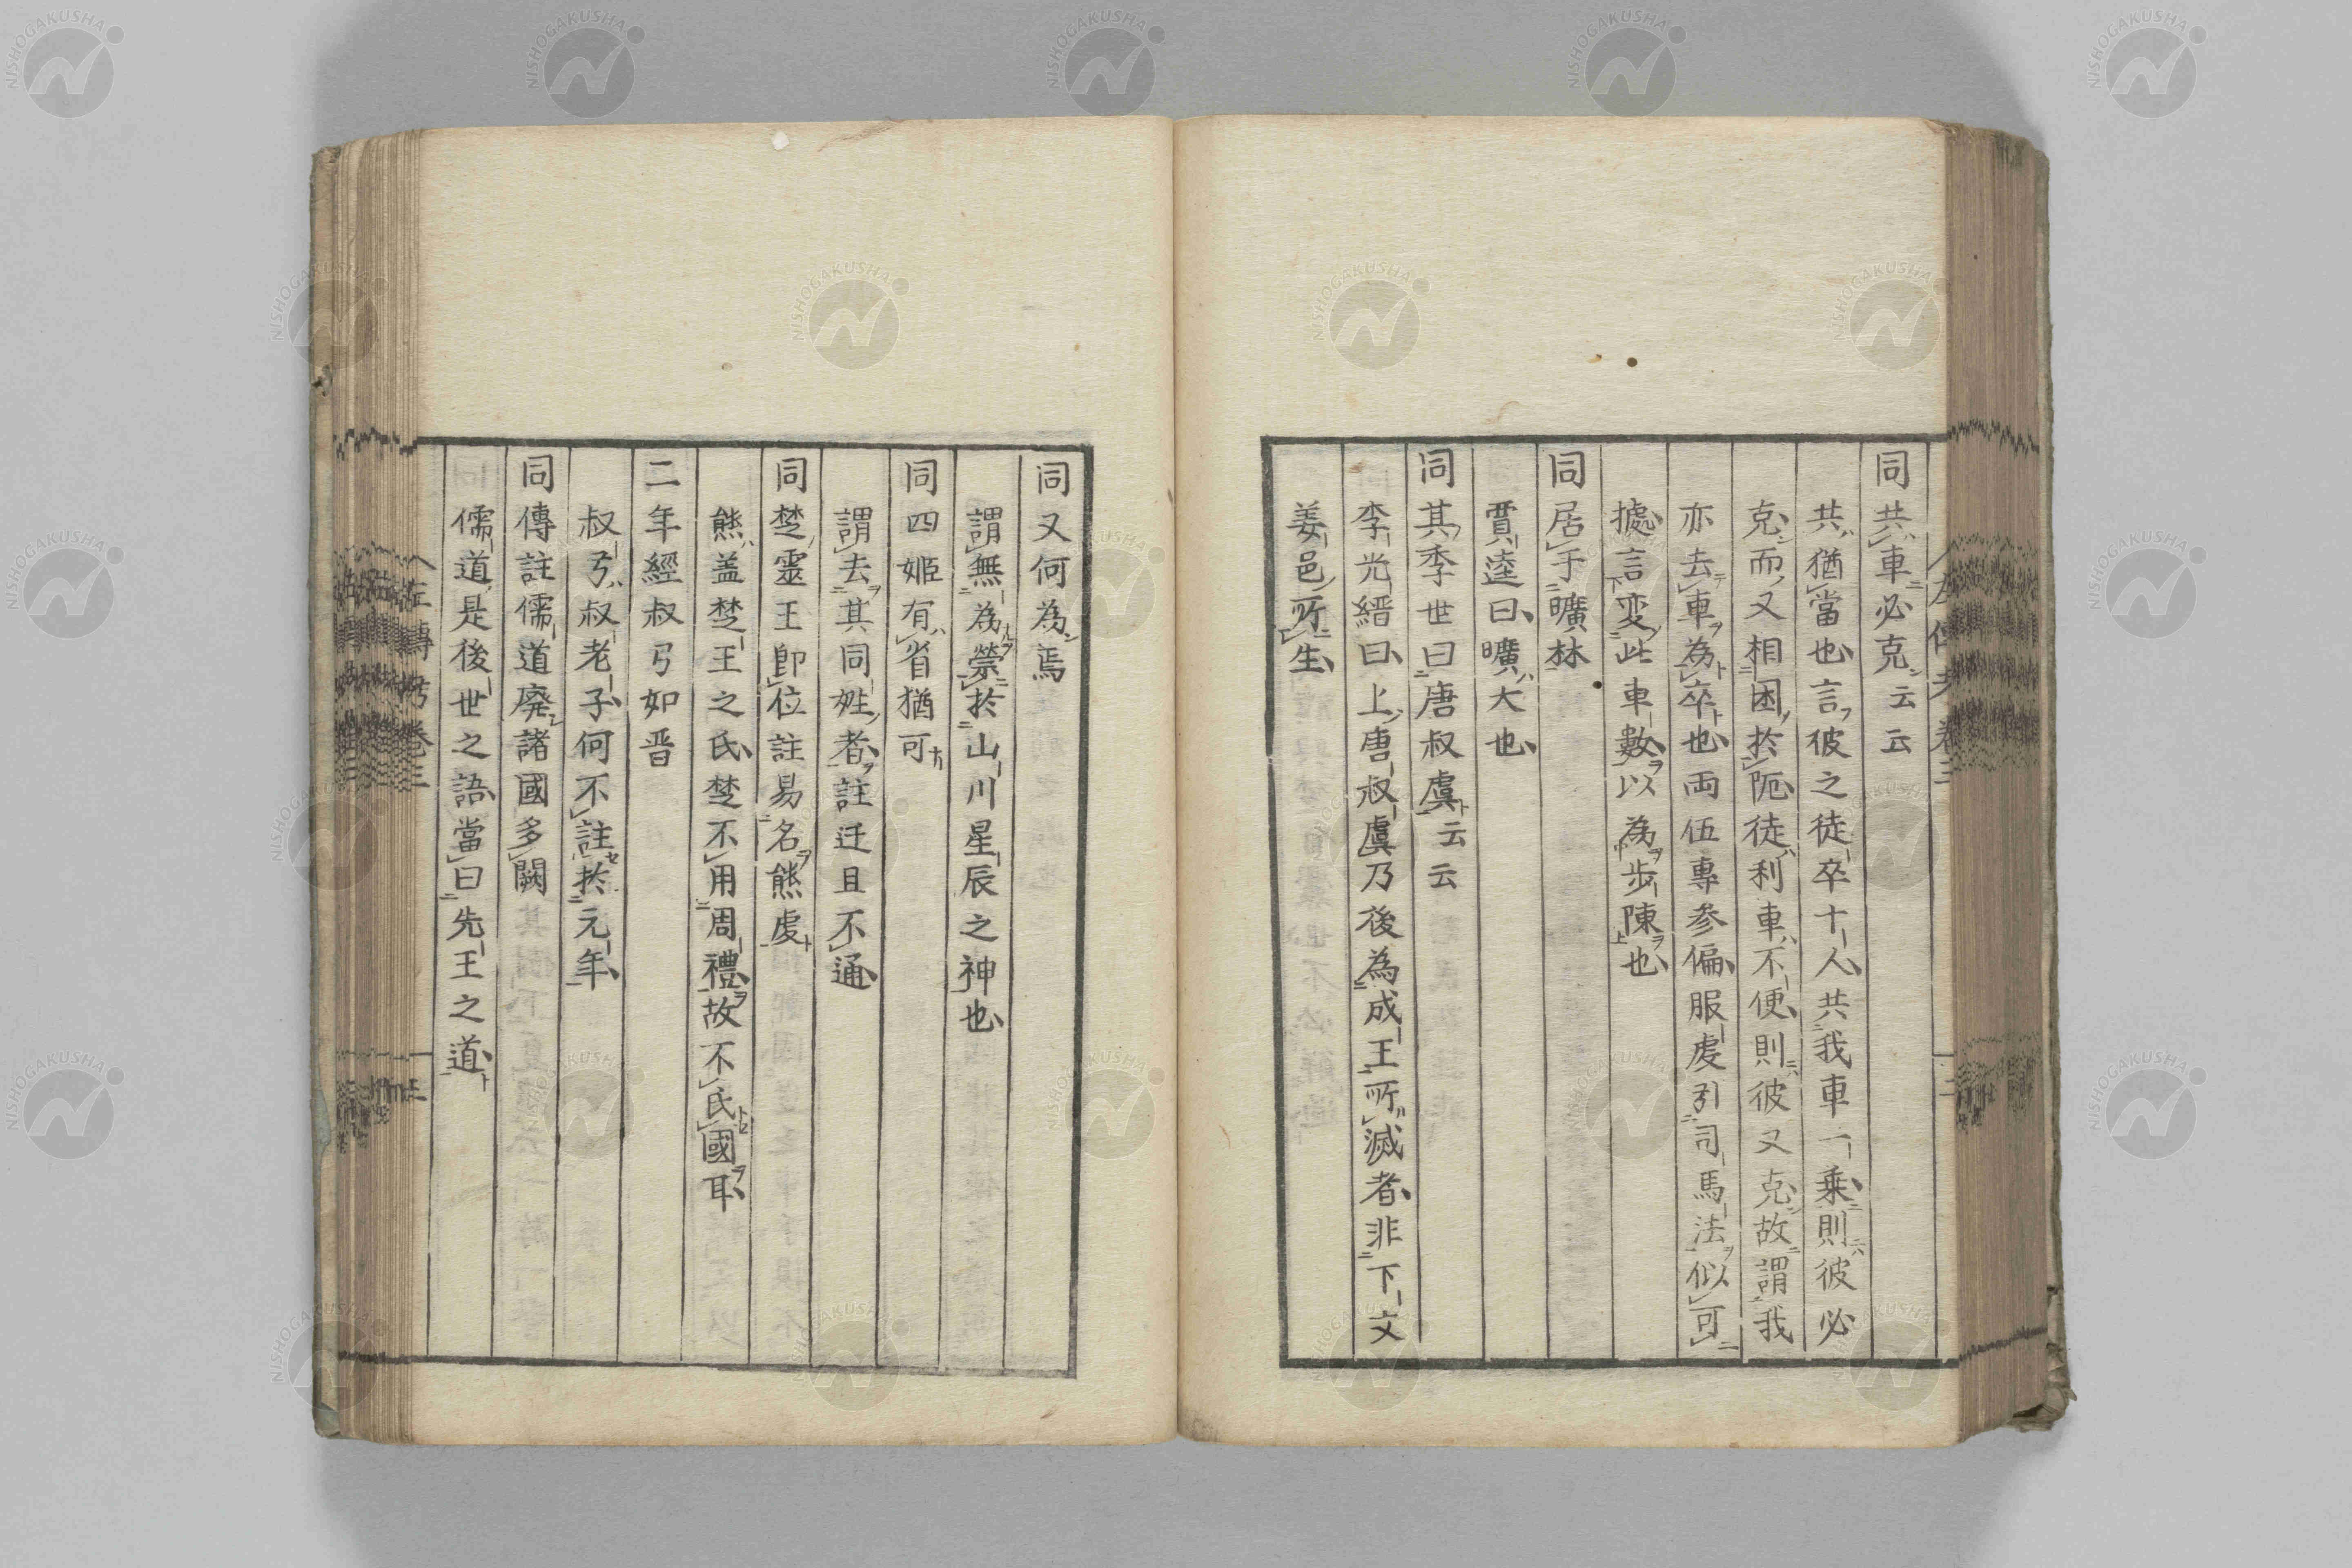 同共車必克云云
共猶當也言彼之徒卒十人共我車一乘則彼必
克而又相困於阨徒利車不便則彼又克故謂我
亦去車為卒也両伍專参偏服虔引司馬法似可
據言変此車數以為步陳也
同居于曠林
賈逵曰曠大也
同其季世曰唐叔虞云云
李光縉曰上唐叔虞乃後為成王所滅者非下文
姜邑所生
同又何為焉
謂無為禜於山川星辰之神也
同四姬有省猶可
謂去其同姓者註迂且不通
同楚靈王即位註易名熊虔
熊盖楚王之氏楚不用周禮故不氏國耳
二年經叔弓如晋
叔弓叔老子何不註於元年
同傳註儒道廃諸國多闕
儒道是後世之語當曰先王之道
左傳考卷三